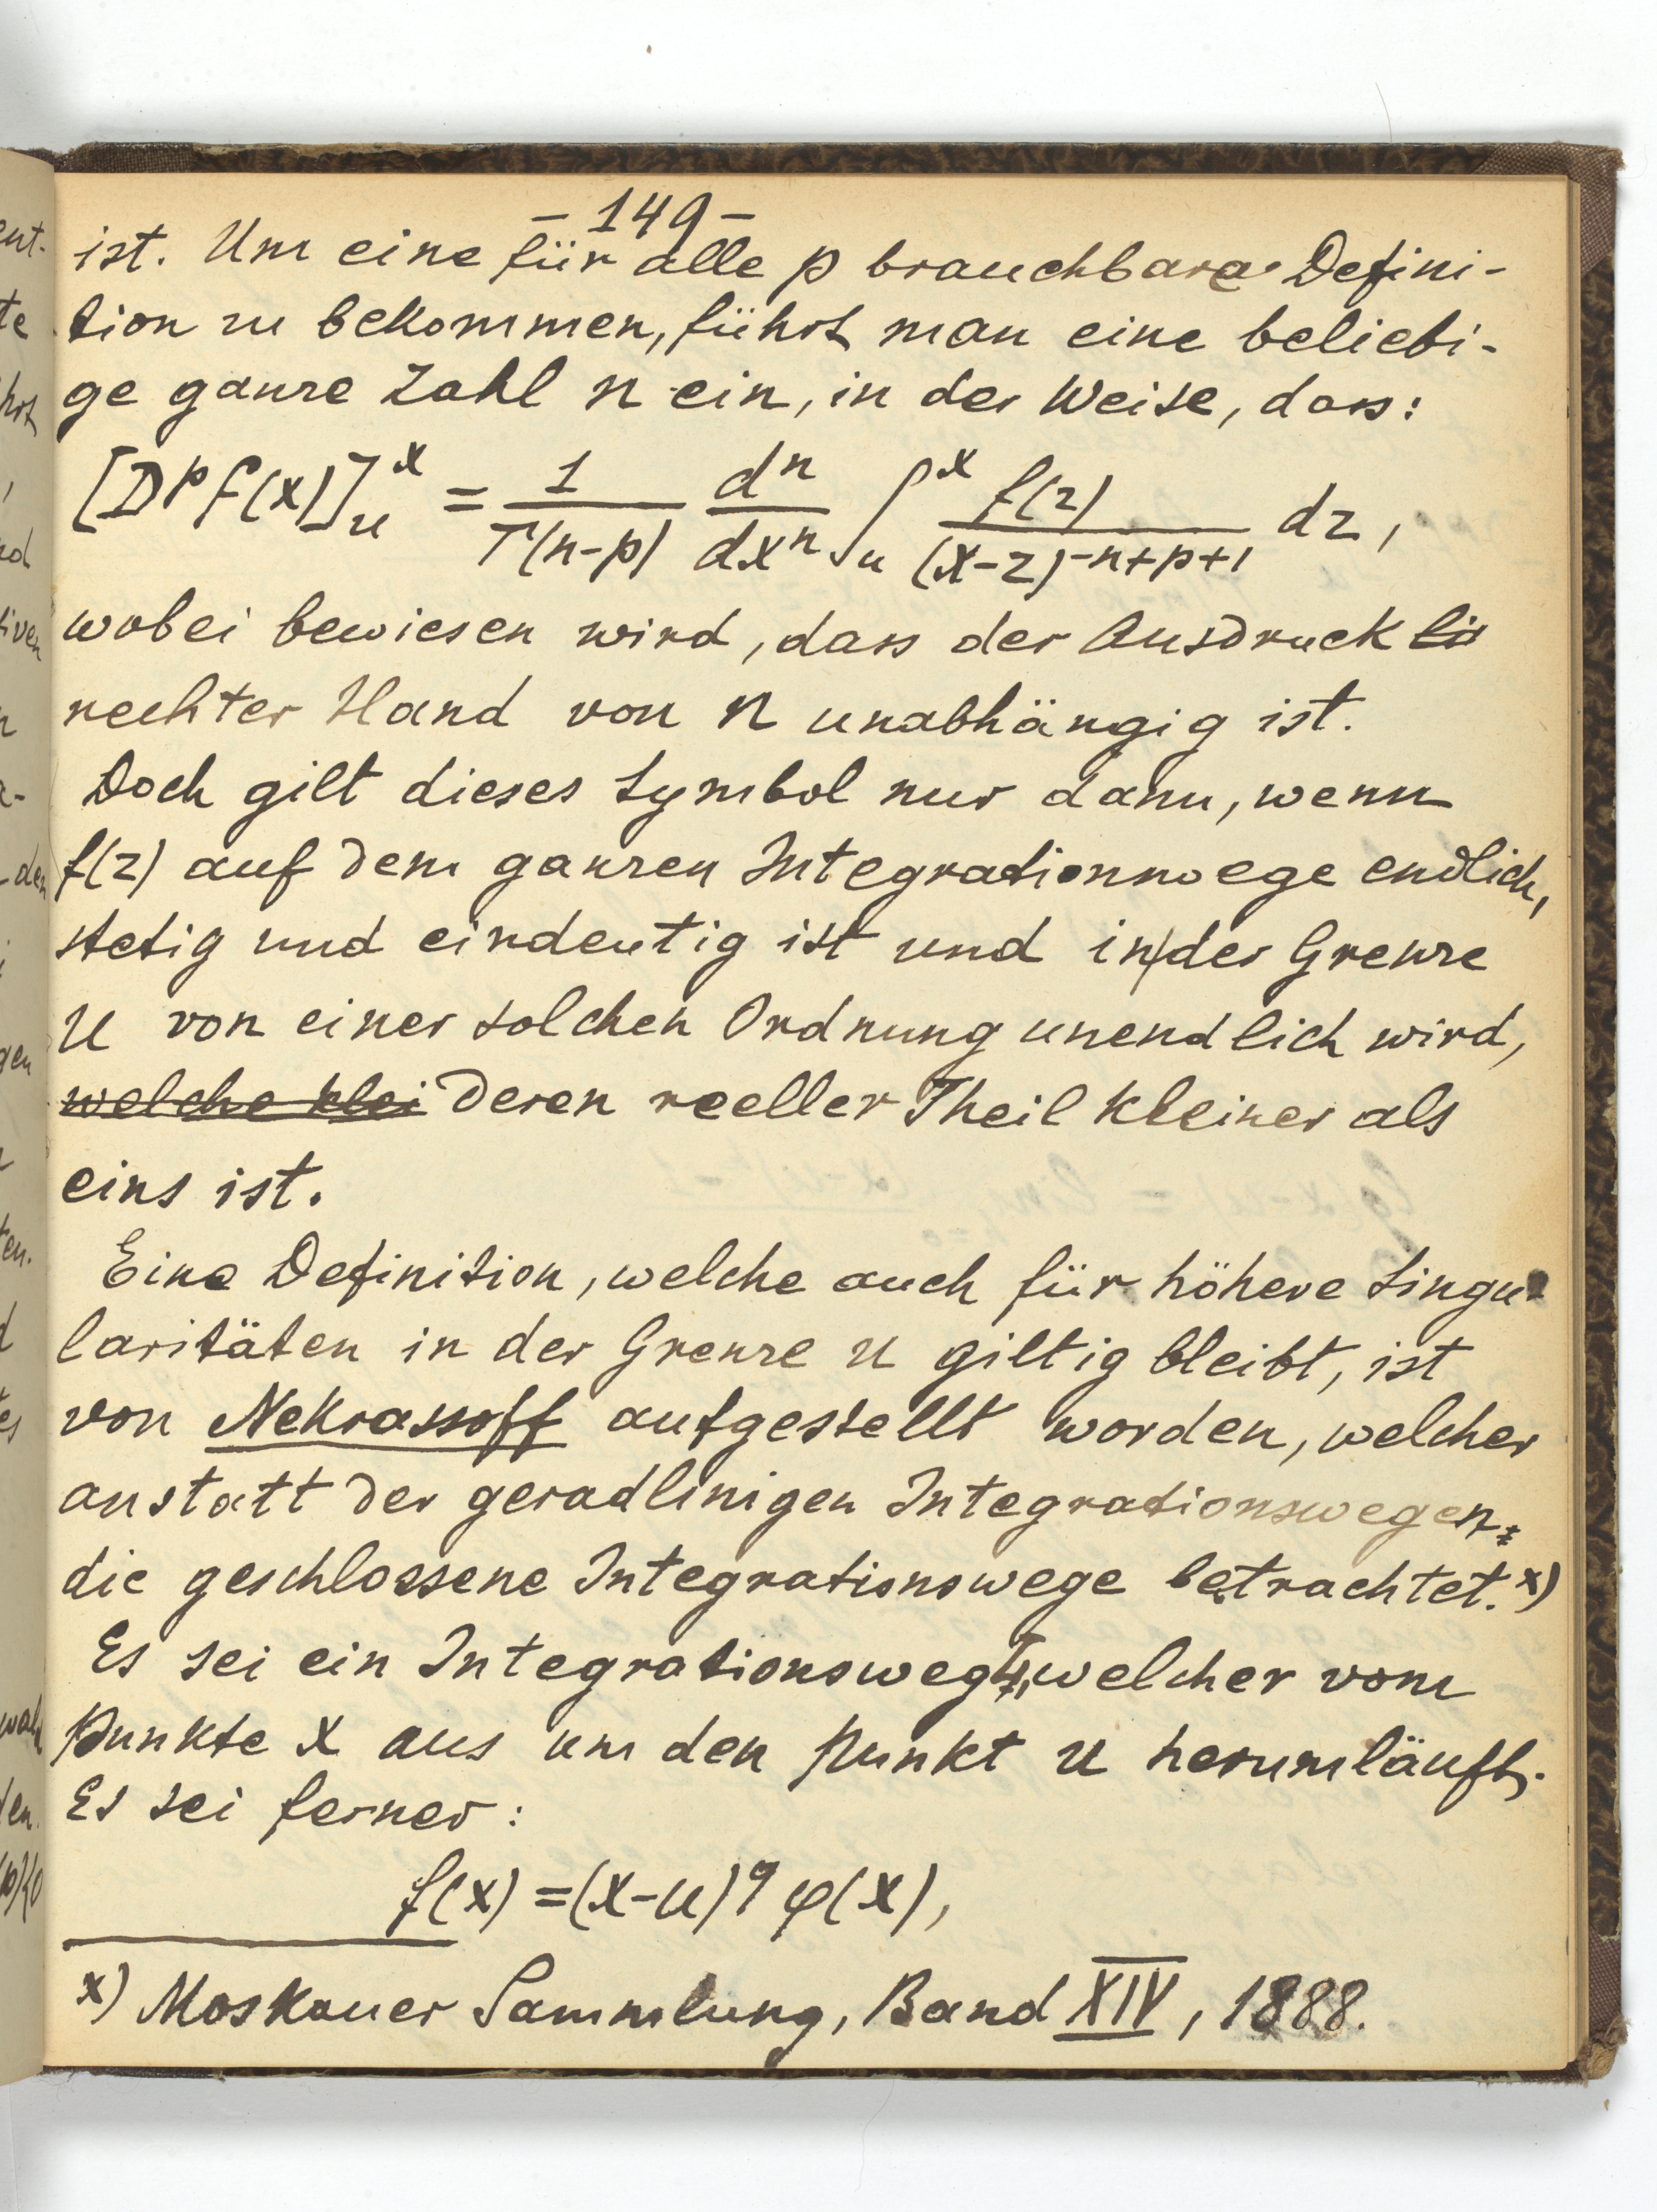 - 149 -
ist. Um eine für alle p brauchbare Defini-
tion zu bekommen, führt man eine beliebi-
ge ganze Zahl n ein, in der Weise, dass:
[D^p f(x)]_u^x = 1/Γ(n-p) d^n/dx^n ∫_u^x f(z)/(x-z)^{-n+p+1} dz,
wobei bewiesen wird, dass der Ausdruck
rechter Hand von n unabhängig ist.
Doch gilt dieses Symbol nur dann, wenn
f(z) auf dem ganzen Integrationswege endlich,
stetig und eindeutig ist und in der Grenze
u von einer solchen Ordnung unendlich wird,
welche klei deren reeller Theil kleiner als
eins ist.
Eine Definition, welche auch für höhere Singu-
laritäten in der Grenze u giltig bleibt, ist
von Nekrassoff aufgestellt worden, welcher
anstatt der geradlinigen Integrationswegen
die geschlossene Integrationswege betrachtet. x)
Es sei ein Integrationsweg, welcher vom
Punkte x aus um den Punkt u herumläuft.
Es sei ferner:
f(x) = (x-u)^q φ(x),
x) Moskauer Sammlung, Band XIV, 1888.